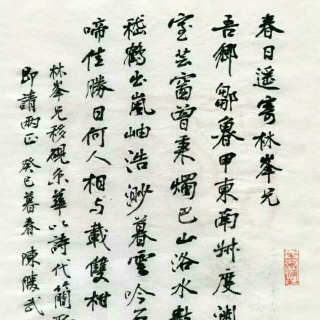 春日遥寄林峯兄
吾鄉鄒魯甲東南艸度淵
室芸窗曾秉燭巴山洛水
嵇鶴出嵐岫浩渺暮雲吟
啼佳勝日何人相与載雙柑
林峯兄移硯京華以詩代簡
即請两正 癸巳暮春 陳勝武